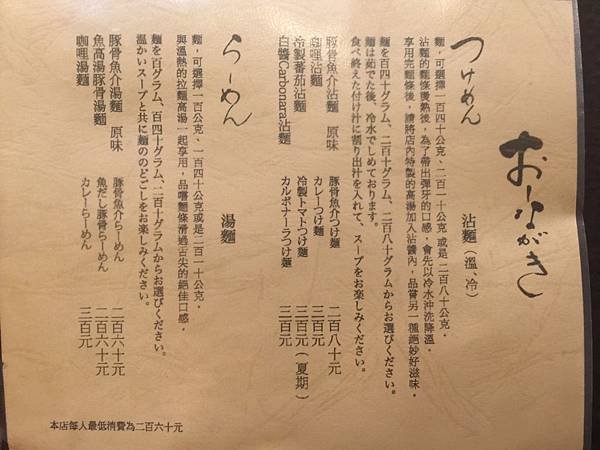 おしながき
つけめん 沾麵（溫、冷）
麵，可選擇一百四十公克、二百一十公克 或是 二百八十公克。
沾麵的麵條燙熟後，為了帶出彈牙的口感，會先以冷水沖洗降溫，
享用完麵條後，請將店內特製的高湯加入沾醬內，品嘗另一種絕妙好滋味。
麵を百四十グラム、二百十グラム、二百八十グラムからお選びください。
麵は茹でた後、冷水でしめております。
食べ終えた付け汁に割り出汁を入れて、スープをお楽しみください。
豚骨魚介沾麵 原味 豚骨魚介つけ麵 二百八十元
咖哩沾麵 カレーつけ麵 三百元
冷製蕃茄沾麵 冷製トマトつけ麵 三百元（夏期）
白醬Carbonara沾麵 カルボナーラつけ麵 三百元
らーめん 湯麵
麵，可選擇一百公克、一百四十公克或是二百一十公克。
與溫熱的拉麵高湯一起享用，品嚐麵條滑過舌尖的絕佳口感。
麵を百グラム、百四十グラム、二百十グラムからお選びください。
温かいスープと共に麵ののどごしをお楽しみください。
豚骨魚介湯麵 原味 豚骨魚介らーめん 二百六十元
魚高湯豚骨湯麵 魚だし豚骨らーめん 二百六十元
咖哩湯麵 カレーらーめん 三百元
本店每人最低消費為二百六十元